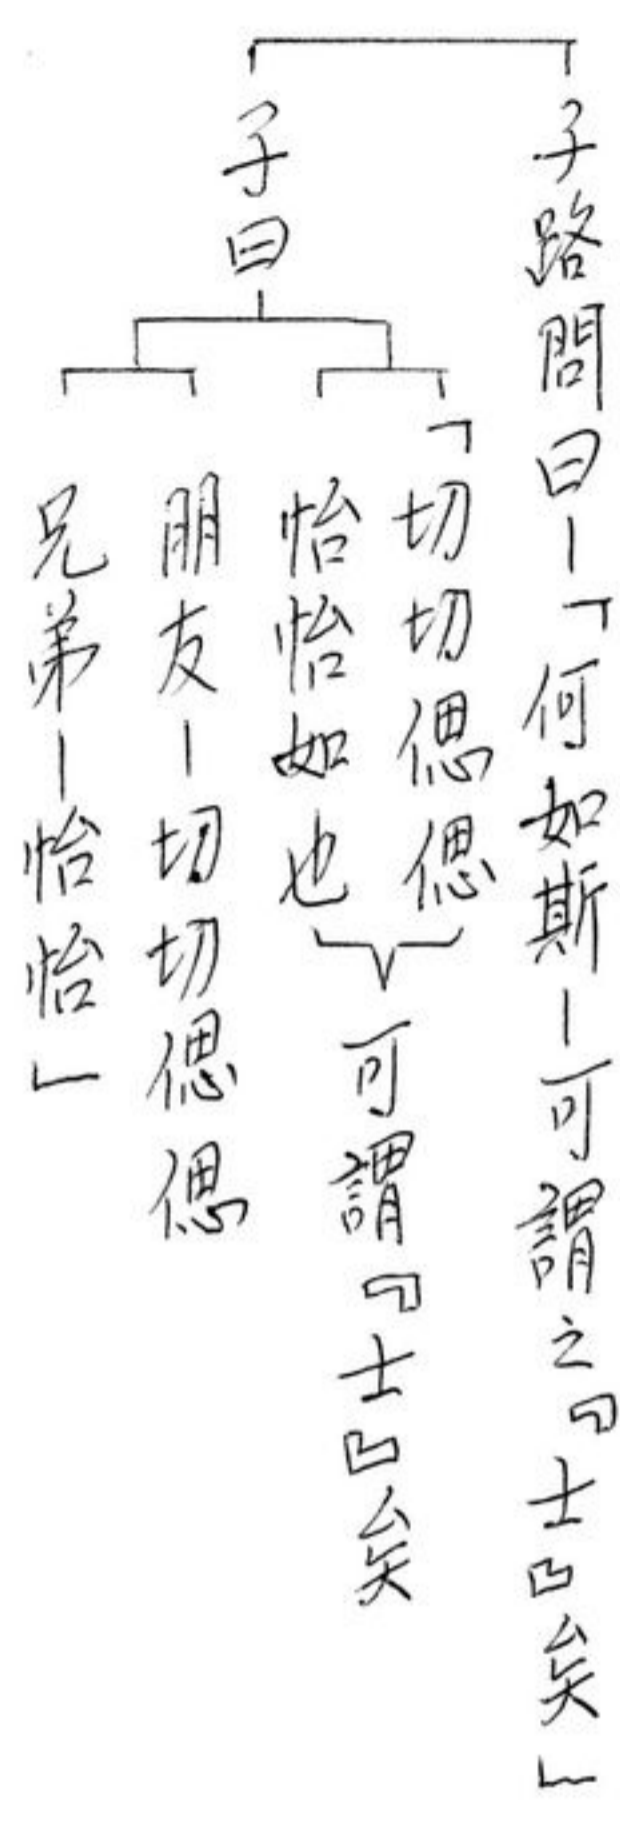 子路問曰－「何如斯－可謂之『士』矣」
子曰
「切切偲偲
怡怡如也
可謂『士』矣
朋友－切切偲偲
兄弟－怡怡」